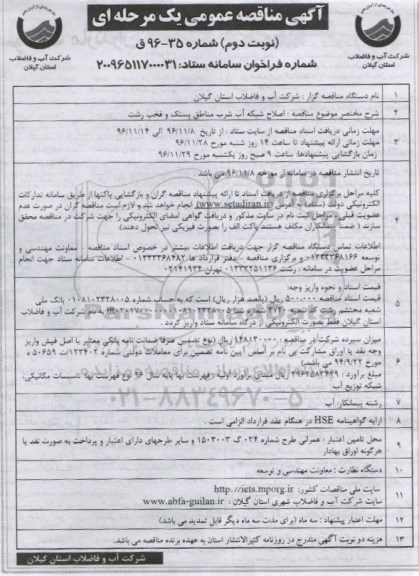 آگهی مناقصه عمومی یک مرحله ای
(نوبت دوم) شماره ۳۵-۹۶ ق
شماره فراخوان سامانه ستاد: ۲۰۰۹۶۵۱۱۷۰۰۰۰۳۱
شرکت آب و فاضلاب استان گیلان
شرکت آب و فاضلاب استان گیلان
۱ نام دستگاه مناقصه گزار : شرکت آب و فاضلاب استان گیلان
۲ شرح مختصر موضوع مناقصه : اصلاح شبکه آب شرب مناطق پستک و فخب رشت
۳ مهلت زمانی دریافت اسناد مناقصه از سایت ستاد : از تاریخ ۹۶/۱۱/۸ الی ۹۶/۱۱/۱۴
مهلت زمانی ارائه پیشنهاد تا ساعت ۱۴ روز شنبه مورخ ۹۶/۱۱/۲۸
زمان بازگشایی پیشنهادها ساعت ۹ صبح روز یکشنبه مورخ ۹۶/۱۱/۲۹
۴ تاریخ انتشار مناقصه در سامانه از مورخه ۹۶/۱۱/۸ می باشد.
کلیه مراحل برگزاری مناقصه از دریافت اسناد تا ارائه پیشنهاد مناقصه گران و بازگشایی پاکتها از طریق سامانه تدارکات
الکترونیکی دولت (ستاد) به آدرس (www.setadiran.ir) انجام خواهد شد و لازم است مناقصه گران در صورت عدم
عضویت قبلی، مراحل ثبت نام در سایت مذکور و دریافت گواهی امضای الکترونیکی را جهت شرکت در مناقصه محقق
سازند ( ضمناً پیمانکاران مکلف هستند پاکت الف را بصورت فیزیکی نیز تحویل دهند).
اطلاعات تماس دستگاه مناقصه گزار جهت دریافت اطلاعات بیشتر در خصوص اسناد مناقصه معاونت مهندسی و
توسعه ۰۱۳۳۳۳۶۸۱۶۶ و برگزاری مناقصه - دفتر قراردادها ۰۱۳۳۳۳۶۸۴۸۲ - اطلاعات سامانه ستاد جهت انجام
مراحل عضویت در سامانه : رشت ۰۱۳۳۳۲۵۱۱۳۶ تهران ۰۲۱۴۱۹۳۴
۵ قیمت اسناد و نحوه واریز وجه:
قیمت اسناد مناقصه ۵۰۰۰۰۰ ریال (پانصد هزار ریال) است که به حساب شماره ۰۱۰۸۱۰۲۳۲۸۰۰۵ بانک ملی
به نام شرکت آب و فاضلاب
استان گیلان فقط بصورت الکترونیکی از درگاه سامانه ستاد واریز گردد.
۶ میزان سپرده شرکت در مناقصه : ۱۴۸۱۳۰۰۰۰ ریال (نوع تضمین صرفا ضمانت نامه بانکی معتبر یا اصل فیش واریز
وجه نقد یا اوراق مشارکت بی نام بر اساس آیین نامه تضمین برای معاملات دولتی شماره ۱۲۳۴۰۲/ت ۵۰۶۵۹ ه
مورخ ۹۴/۹/۲۲ می باشد)
مبلغ برآورد : ۲۹۶۲۵۸۲۴۲۹ ریال مبنای برآورد
شبکه توزیع آب
۷ رشته پیمانکار: آب
۸ ارایه گواهینامه HSE در هنگام عقد قرارداد الزامی است.
۹ محل تامین اعتبار : عمرانی طرح شماره ۰۲۴-گ-۱۵۰۳۰۰۳ و سایر طرحهای دارای اعتبار و پرداخت به صورت نقد یا
هرگونه اوراق بهادار
۱۰ دستگاه نظارت : معاونت مهندسی و توسعه
۱۱ سایت ملی مناقصات کشور: http://iets.mporg.ir
سایت شرکت آب و فاضلاب شهری استان گیلان : www.abfa-guilan.ir
۱۲ مهلت اعتبار پیشنهاد : سه ماه (برای مدت سه ماه دیگر قابل تمدید می باشد)
۱۳ هزینه دو نوبت آگهی مندرج در روزنامه کثیرالانتشار استان به عهده برنده مناقصه می باشد.
شرکت آب و فاضلاب استان گیلان
۰۲۱-۸۸۳۴۹۶۷۰-۵